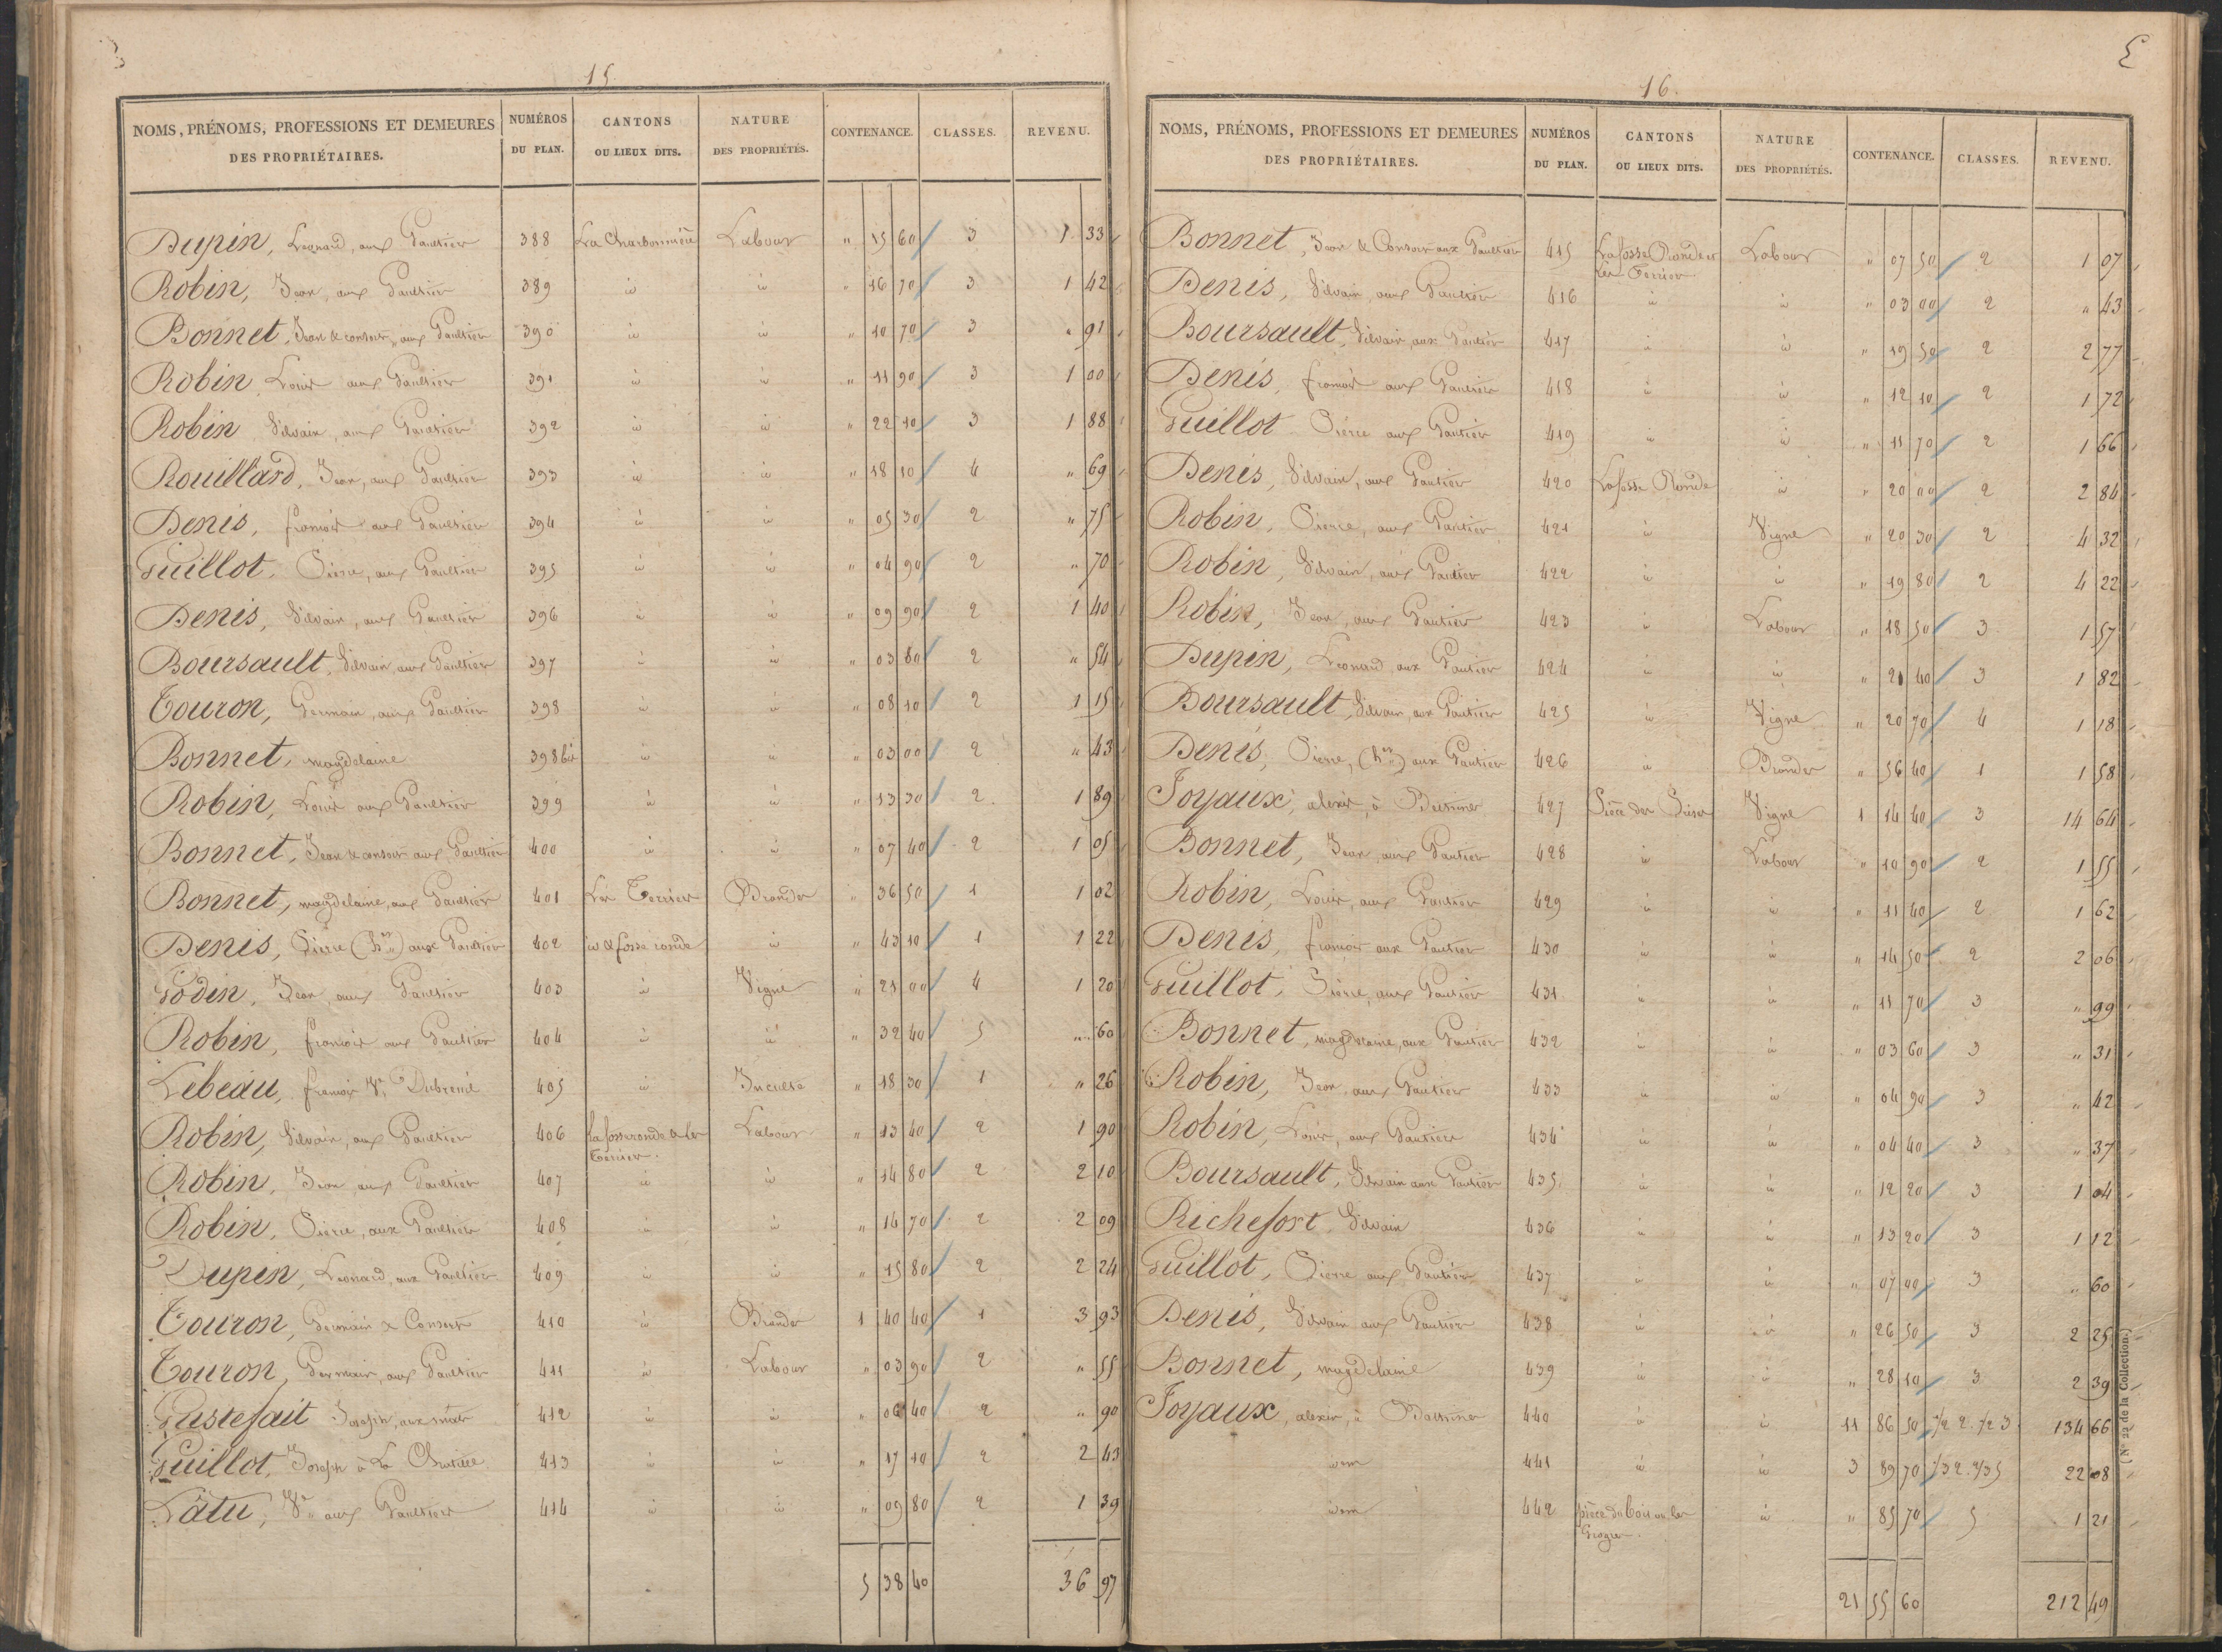 15
NOMS, PRÉNOMS, PROFESSIONS ET DEMEURES DES PROPRIÉTAIRES. NUMÉROS DU PLAN. CANTONS OU LIEUX DITS. NATURE DES PROPRIÉTÉS. CONTENANCE. CLASSES. REVENU.
Dupin, Leonard, aux Gaultier 388 La Charbonnière Labour " 15 60 3 1 33
Robin, Jean, aux Gaultier 389 id id " 16 70 3 1 42
Bonnet, Jean & consors, aux Gaultier 390 id id " 10 70 3 " 91
Robin Louis aux Gaultier 391 id id " 11 90 3 1 00
Robin Silvain, aux Gaultier 392 id id " 22 10 3 1 88
Rouillard, Jean, aux Gaultier 393 id id " 18 10 4 " 69
Denis, francois aux Gaultier 394 id id " 05 30 2 " 75
Guillot, Pierre, aux Gaultier 395 id id " 04 90 2 " 70
Denis, Silvain, aux Gaultier 396 id id " 09 90 2 1 40
Boursault, Silvain, aux Gaultier 397 id id " 03 80 2 " 54
Touron, Germain, aux Gaultier 398 id id " 08 10 2 1 15
Bonnet, magdelaine 398 bis id id " 03 00 2 " 43
Robin, Louis aux Gaultier 399 id id " 13 30 2 1 89
Bonnet, Jean & consors aux Gaultier 400 id id " 07 40 2 1 05
Bonnet, magdelaine, aux Gaultier 401 Les Terrier Brandes " 36 50 1 1 02
Denis, Pierre (hers) aux Gaultier 402 id & fosse ronde id " 43 10 1 1 22
Godin, Jean, aux Gaultier 403 id Vigne " 21 00 4 1 20
Robin, francois aux Gaultier 404 id id " 32 40 5 " 60
Lebeau, francois Ve Dubreuil 405 id Inculte " 18 30 1 " 26
Robin, Silvain, aux Gaultier 406 La fosse ronde & les Terrier. Labour " 13 40 2 1 90
Robin, Jean, aux Gaultier 407 id id " 14 80 2 2 10
Robin, Pierre, aux Gaultier 408 id id " 14 70 2 2 09
Dupin, Leonard, aux Gaultier 409 id id " 15 80 2 2 24
Touron, Germain & Consors 410 id Brandes 1 40 40 1 3 93
Touron, Germain, aux Gaultier 411 id Labour " 03 90 2 " 55
Gustefait Joseph, aux 412 id id " 06 40 2 " 90
Guillot, Joseph à La 413 id id " 17 10 2 2 43
Lâtu, Ve aux Gaultier 414 id id " 09 80 2 1 39
5 38 40 36 97
16.
NOMS, PRÉNOMS, PROFESSIONS ET DEMEURES DES PROPRIÉTAIRES. NUMÉROS DU PLAN. CANTONS OU LIEUX DITS. NATURE DES PROPRIÉTÉS. CONTENANCE. CLASSES. REVENU.
Bonnet, Jean & Consors aux Gaultier 415 La fosse Ronde et Les Terrier Labour " 07 50 2 1 07
Denis, Silvain, aux Gautier 416 id id " 03 00 2 " 43
Boursault, Silvain, aux Gautier 417 id id " 19 50 2 2 77
Denis, francois aux Gautier 418 id id " 12 10 2 1 72
Guillot Pierre aux Gautier 419 id id " 11 70 2 1 66
Denis, Silvain, aux Gautier 420 La fosse Ronde id " 20 00 2 2 84
Robin, Pierre, aux Gautier 421 id Vigne " 20 30 2 4 32
Robin, Silvain, aux Gautier 422 id id " 19 80 2 4 22
Robin, Jean, aux Gautier 423 id Labour " 18 50 3 1 57
Dupin, Leonard aux Gautier 424 id id " 21 40 3 1 82
Boursault, Silvain, aux Gautier 425 id Vigne " 20 70 4 1 18
Denis, Pierre, (hers) aux Gautier 426 id Brandes " 56 40 1 1 58
Joyaux, alexis, à 427 Pièce des Vigne 1 14 40 3 14 64
Bonnet, Jean, aux Gautier 428 id Labour " 10 90 2 1 55
Robin, Louis, aux Gautier 429 id id " 11 40 2 1 62
Denis, francois aux Gautier 430 id id " 14 50 2 2 06
Guillot, Pierre, aux Gautier 431 id id " 11 70 3 " 99
Bonnet, magdelaine, aux Gautier 432 id id " 03 60 3 " 31
Robin, Jean, aux Gautier 433 id id " 04 90 3 " 42
Robin, Louis, aux Gautier 434 id id " 04 40 3 " 37
Boursault, Silvain aux Gautier 435 id id " 12 20 3 1 04
Richefort, Silvain 436 id id " 13 20 3 1 12
Guillot, Pierre aux Gautier 437 id id " 07 00 3 " 60
Denis, Silvain aux Gautier 438 id id " 26 50 3 2 25
Bonnet, magdelaine 439 id id " 28 10 3 2 39
Joyaux, alexis, à 440 id id 11 86 50 1/2 2. 1/2 3 134 66
idem 441 id id 3 89 70 22 08
idem 442 pièce du bois ou les id " 85 70 5 1 21
21 55 60 212 49
(N° 22 de la Collection.)